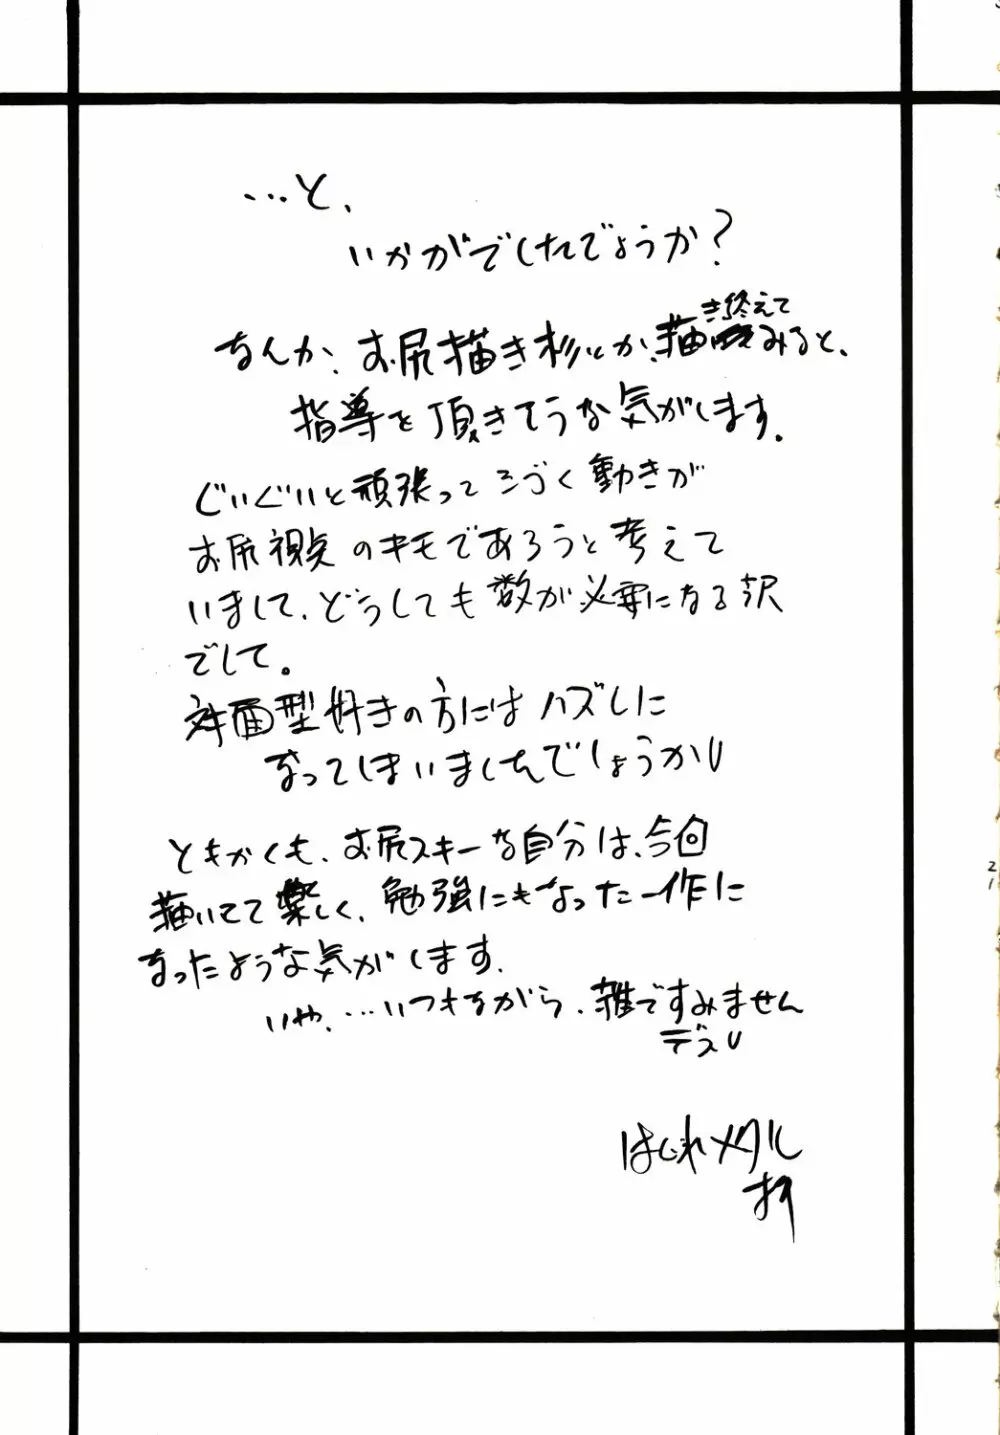 …と、
いかがでしたでしょうか？
なんか、お尻描き杉とか、描き終えてみると、
指導を頂きそうな気がします。
ぐいぐいと頑張って うごく動きが
お尻視点のキモであろうと考えて
いまして、どうしても数が必要になる訳
でして。
対面型好きの方にはハズしに
なってしまいましたでしょうか
ともかくも、お尻スキーな自分は、今回
描いてて楽しく、勉強にもなった一作に
なったような気がします。
いや、…いつもながら、雑ですみません
デス
はじれメタル
21